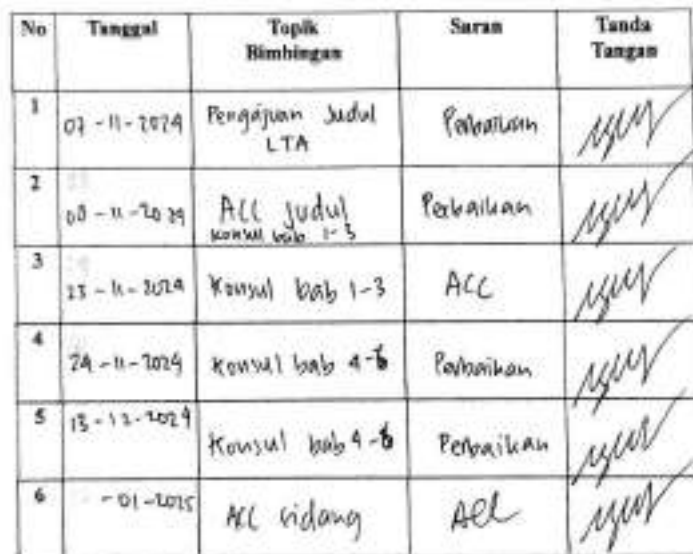 No Tanggal Topik Bimbingan Saran Tanda Tangan
1 07-11-2024 Pengajuan Judul LTA Perbaikan
2 08-11-2024 ACC judul konsul bab 1-3 Perbaikan
3 23-11-2024 Konsul bab 1-3 ACC
4 24-11-2024 Konsul bab 4-6 Perbaikan
5 13-12-2024 Konsul bab 4-6 Perbaikan
6 -01-2025 ACC sidang ACC